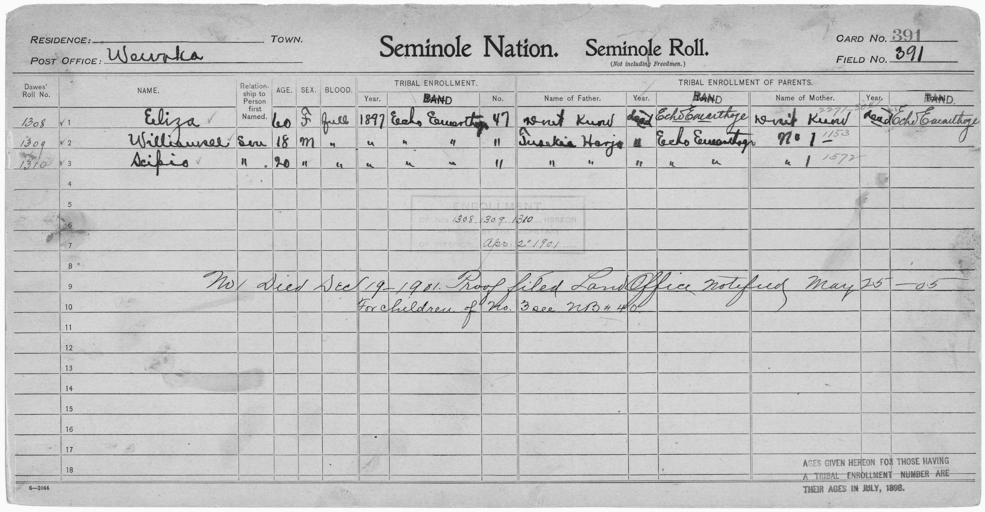 RESIDENCE: TOWN. Seminole Nation. Seminole Roll. CARD No. 391
POST OFFICE: Wewoka (Not including Freedmen.) FIELD No. 391
Dawes' Roll No. NAME. Relationship to Person first Named. AGE. SEX. BLOOD. TRIBAL ENROLLMENT. TRIBAL ENROLLMENT OF PARENTS.
Year. BAND No. Name of Father. Year. BAND Name of Mother. Year. BAND.
1308 ✓ 1 Eliza ✓ 60 F full 1897 Echo 47 Don't Know Dead Echo Don't Know Dead Echo
1309 ✓ 2 ✓ Son 18 M " " " " " Harjo " Echo No 1 1153
1310 ✓ 3 Scipio ✓ " 20 " " " " " " " " " " " " 1 1572
4
5 ENROLLMENT
6 1308 1309 1310 HEREON
7 Apr. 2 1901
8
9 No 1 Died Dec 19-1901. Proof filed Land Office notified May 25-05
10 For children of No. 3 see NB # 40
11
12
13
14
15
16
17
18
AGES GIVEN HEREON FOR THOSE HAVING
A TRIBAL ENROLLMENT NUMBER ARE
THEIR AGES IN JULY, 1898.
6-2166